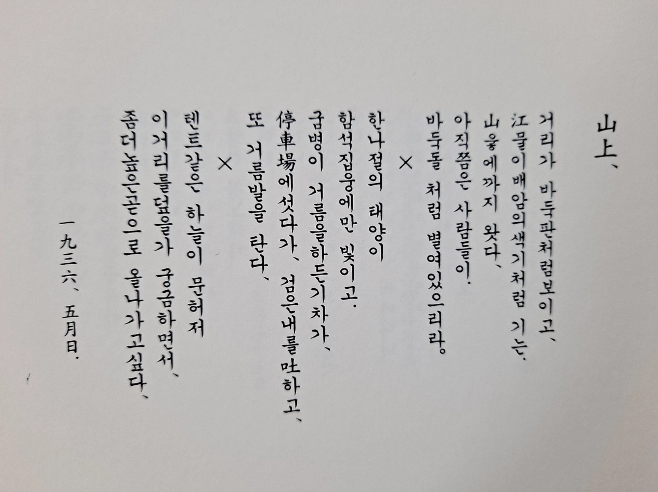 山上、
거리가 바둑판처럼보이고、
江물이배암의색기처럼 기는.
山웋에까지 왓다、
아직쯤은 사람들이.
바둑돌 처럼 별여있으리라。
×
한나절의 태양이
함석집웅에만 빛이고.
굼벙이 거름을하든기차가、
停車場에섯다가、검은내를吐하고、
또 거름발을 탄다、
×
텐트같은 하늘이 문허저
이거리를덮을가 궁금하면서、
좀더높은곧으로 올나가고싶다、
一九三六、五月日.